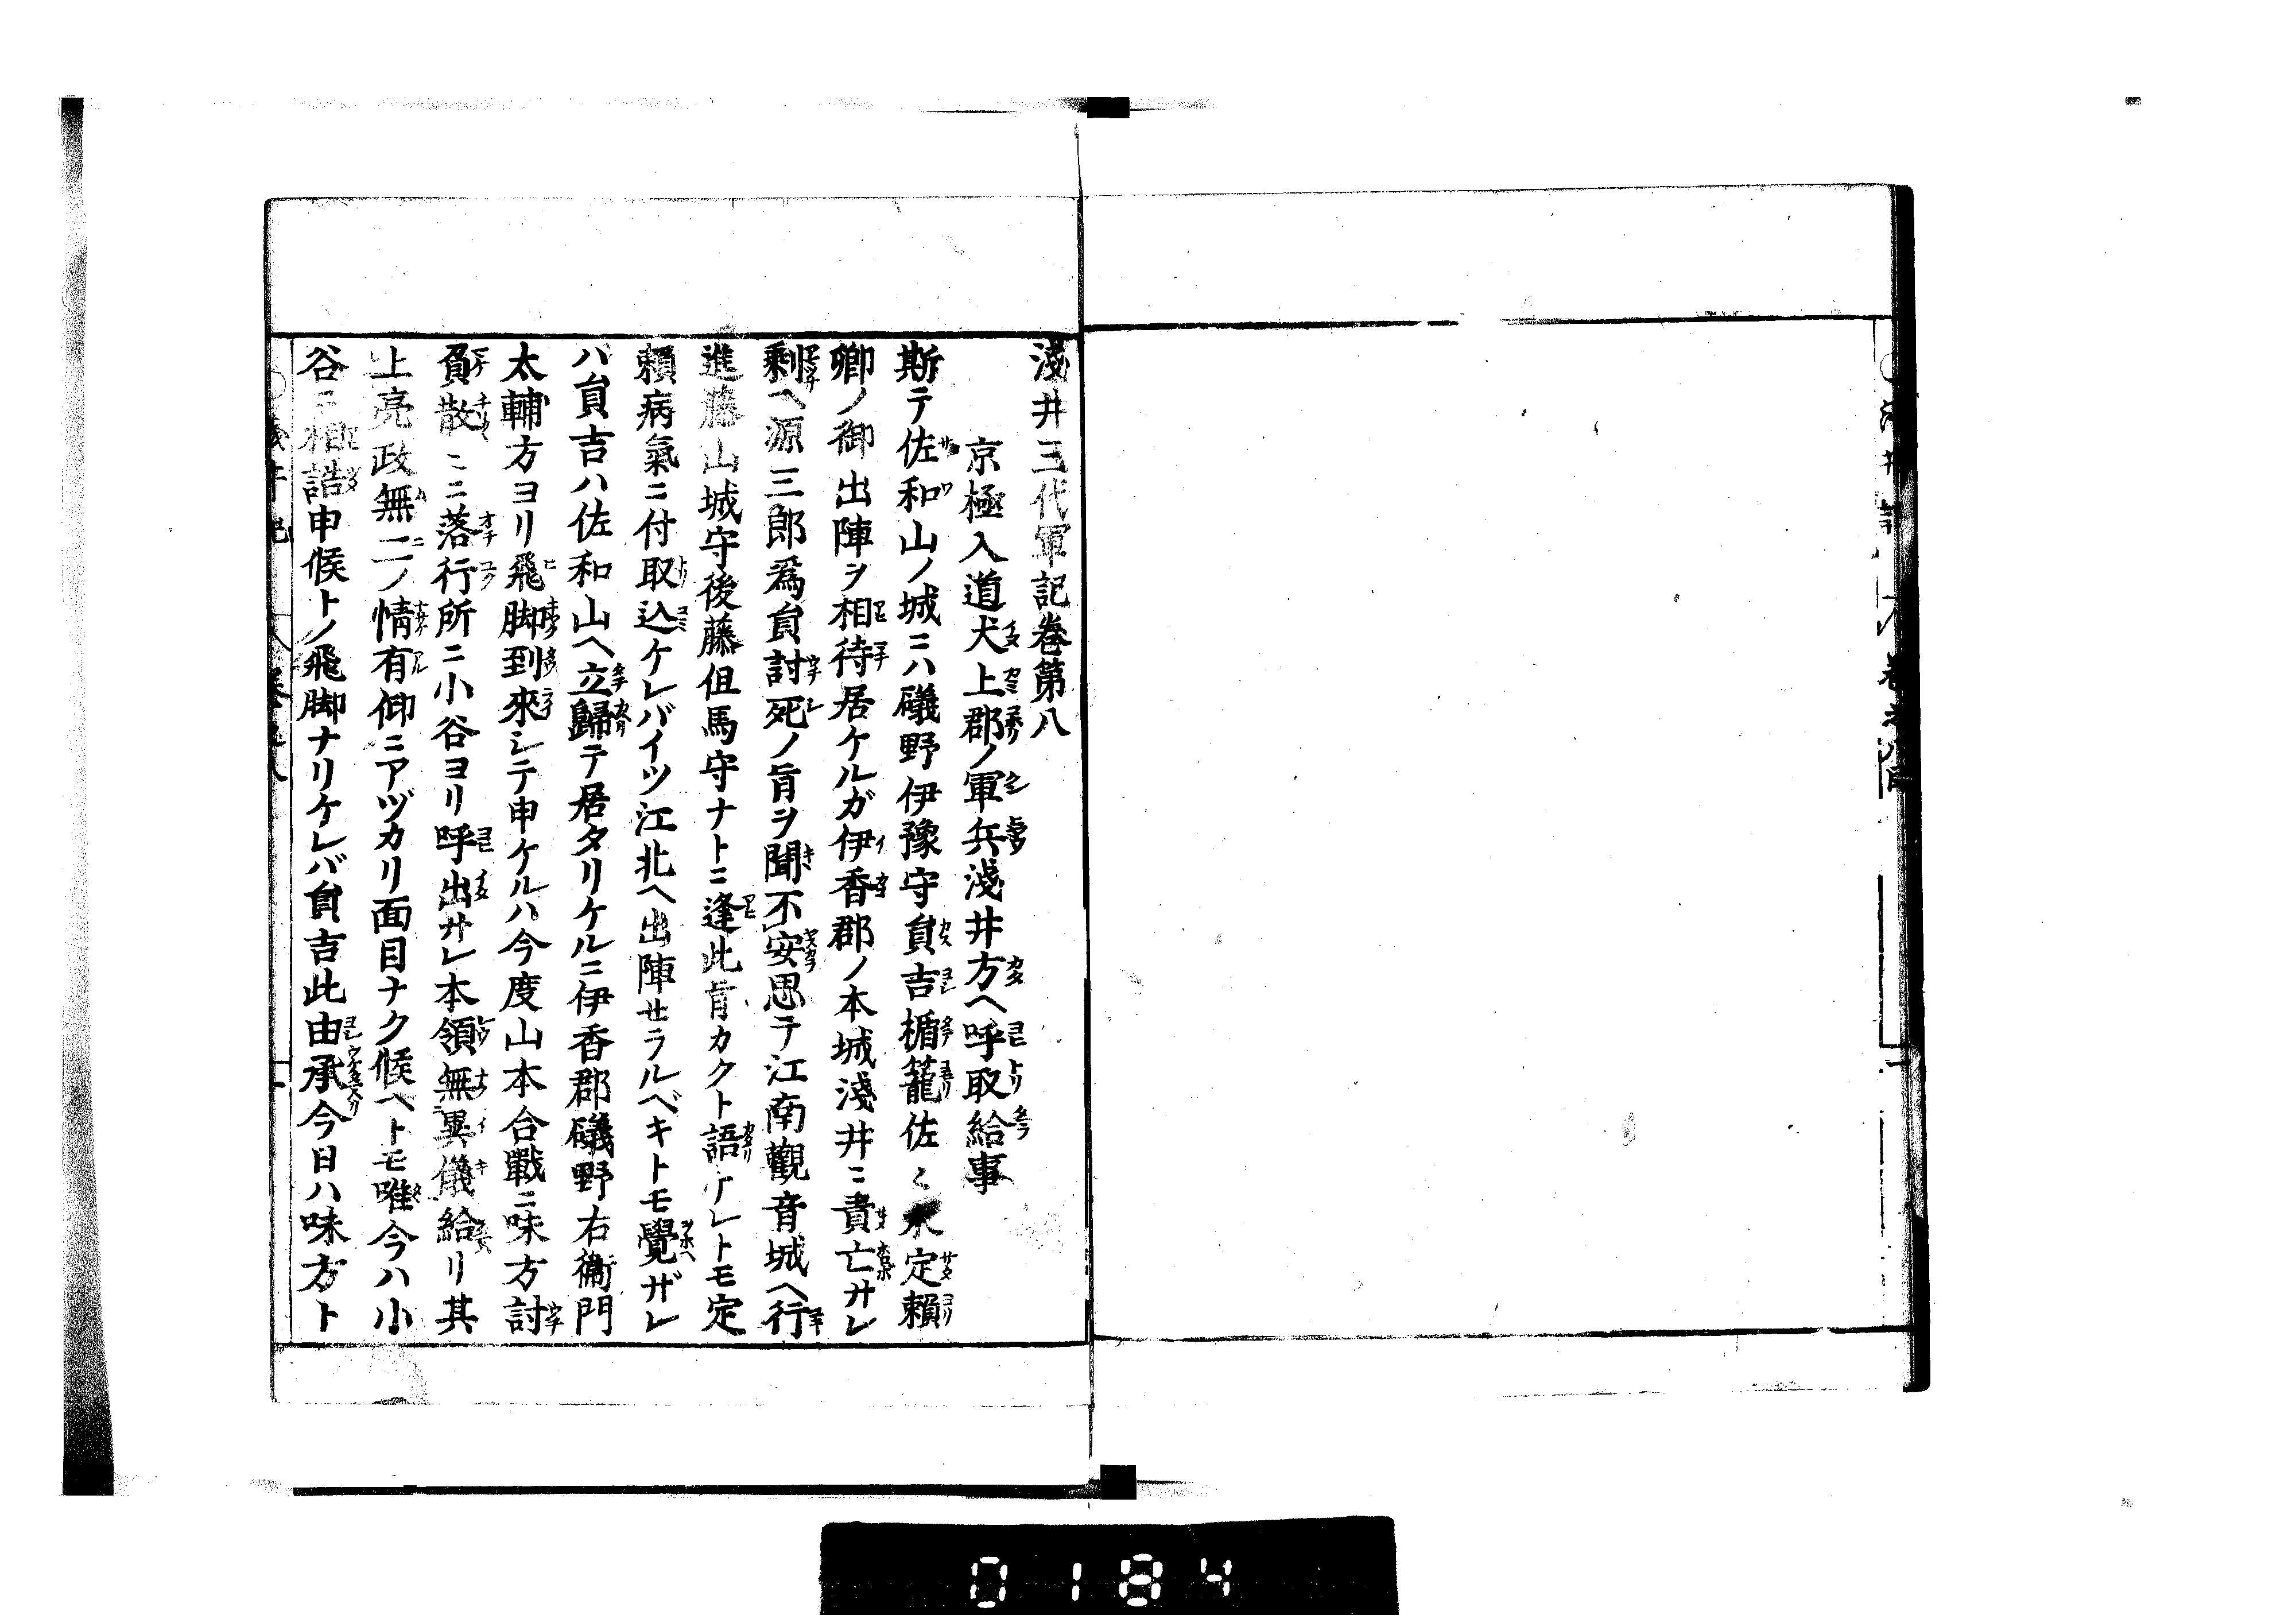 淺井三代軍記卷第八
京極入道犬上郡ノ軍兵淺井方ヘ呼取給事
斯テ佐和山ノ城ニハ礒野伊豫守員吉楯籠佐々木定賴
卿ノ御出陣ヲ相待居ケルガ伊香郡ノ本城淺井ニ責亡サレ
剩ヘ源三郎爲員討死ノ旨ヲ聞不安思テ江南觀音城ヘ行
進藤山城守後藤但馬守ナトニ逢此旨カクト語ケレトモ定
賴病氣ニ付取込ケレバイツ江北ヘ出陣セラルベキトモ覺ザレ
ハ員吉ハ佐和山ヘ立歸テ居タリケルニ伊香郡礒野右衞門
太輔方ヨリ飛脚到來シテ申ケルハ今度山本合戰ニ味方討
負散々ニ落行所ニ小谷ヨリ呼出サレ本領無異儀給リ其
上亮政無二ノ情有仰ニアヅカリ面目ナク候ヘトモ唯今ハ小
谷ニ相詰申候トノ飛脚ナリケレバ員吉此由承今日ハ味方ト
0184